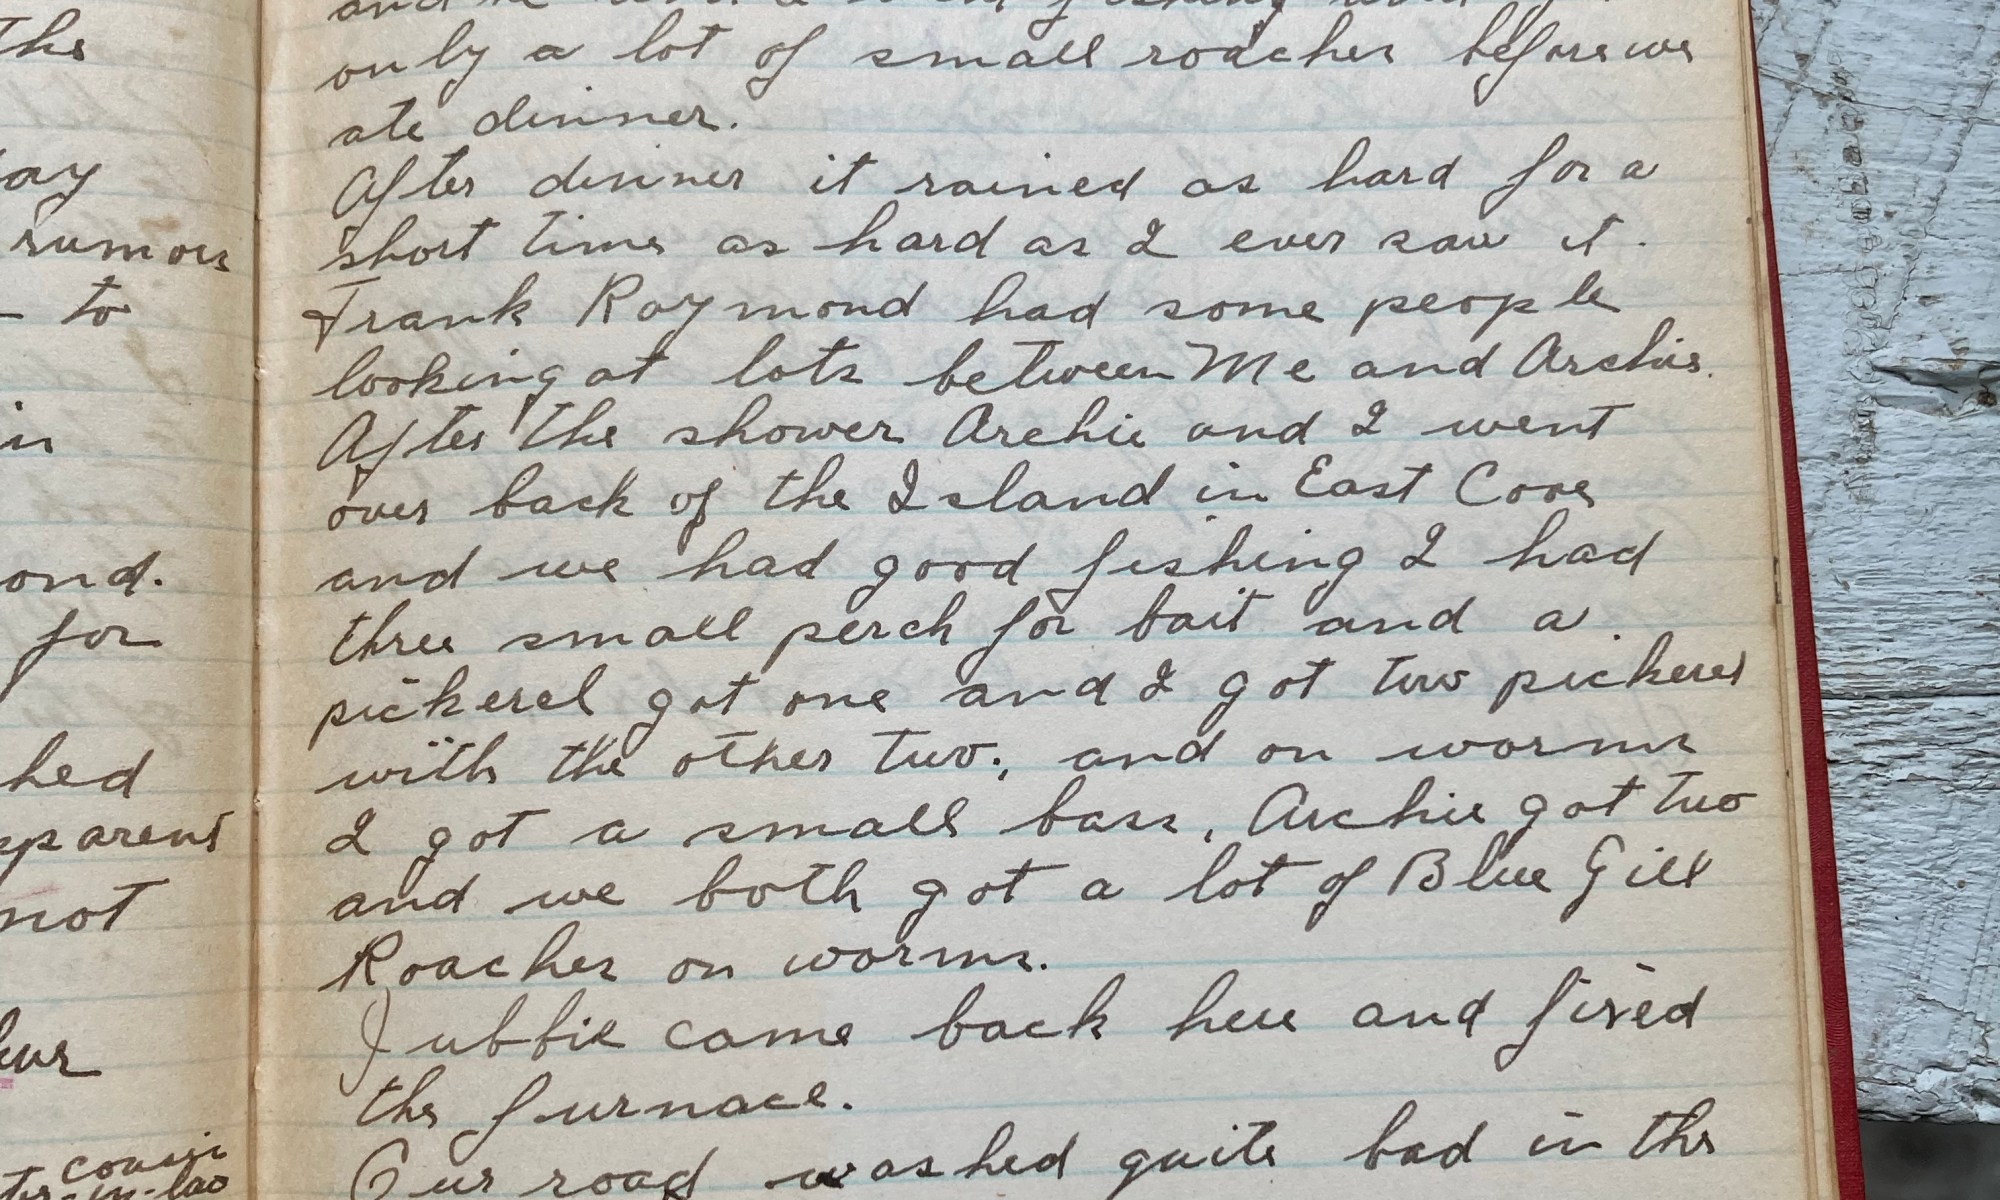 The
ay
rumors
- to
in
ond.
for
hed
parent
not
cousin
-in-law
only a lot of small roaches before we
ate dinner.
After dinner it rained as hard for a
short time as hard as I ever saw it.
Frank Raymond had some people
looking at lots between Me and Archie.
After the shower Archie and I went
over back of the Island in East Cove
and we had good fishing I had
three small perch for bait and a
pickerel got one and I got two pickerel
with the other two, and on worms
I got a small bass, Archie got two
and we both got a lot of Blue Gill
Roaches on worms.
Jubbie came back here and fired
the furnace.
Our road washed quite bad in the